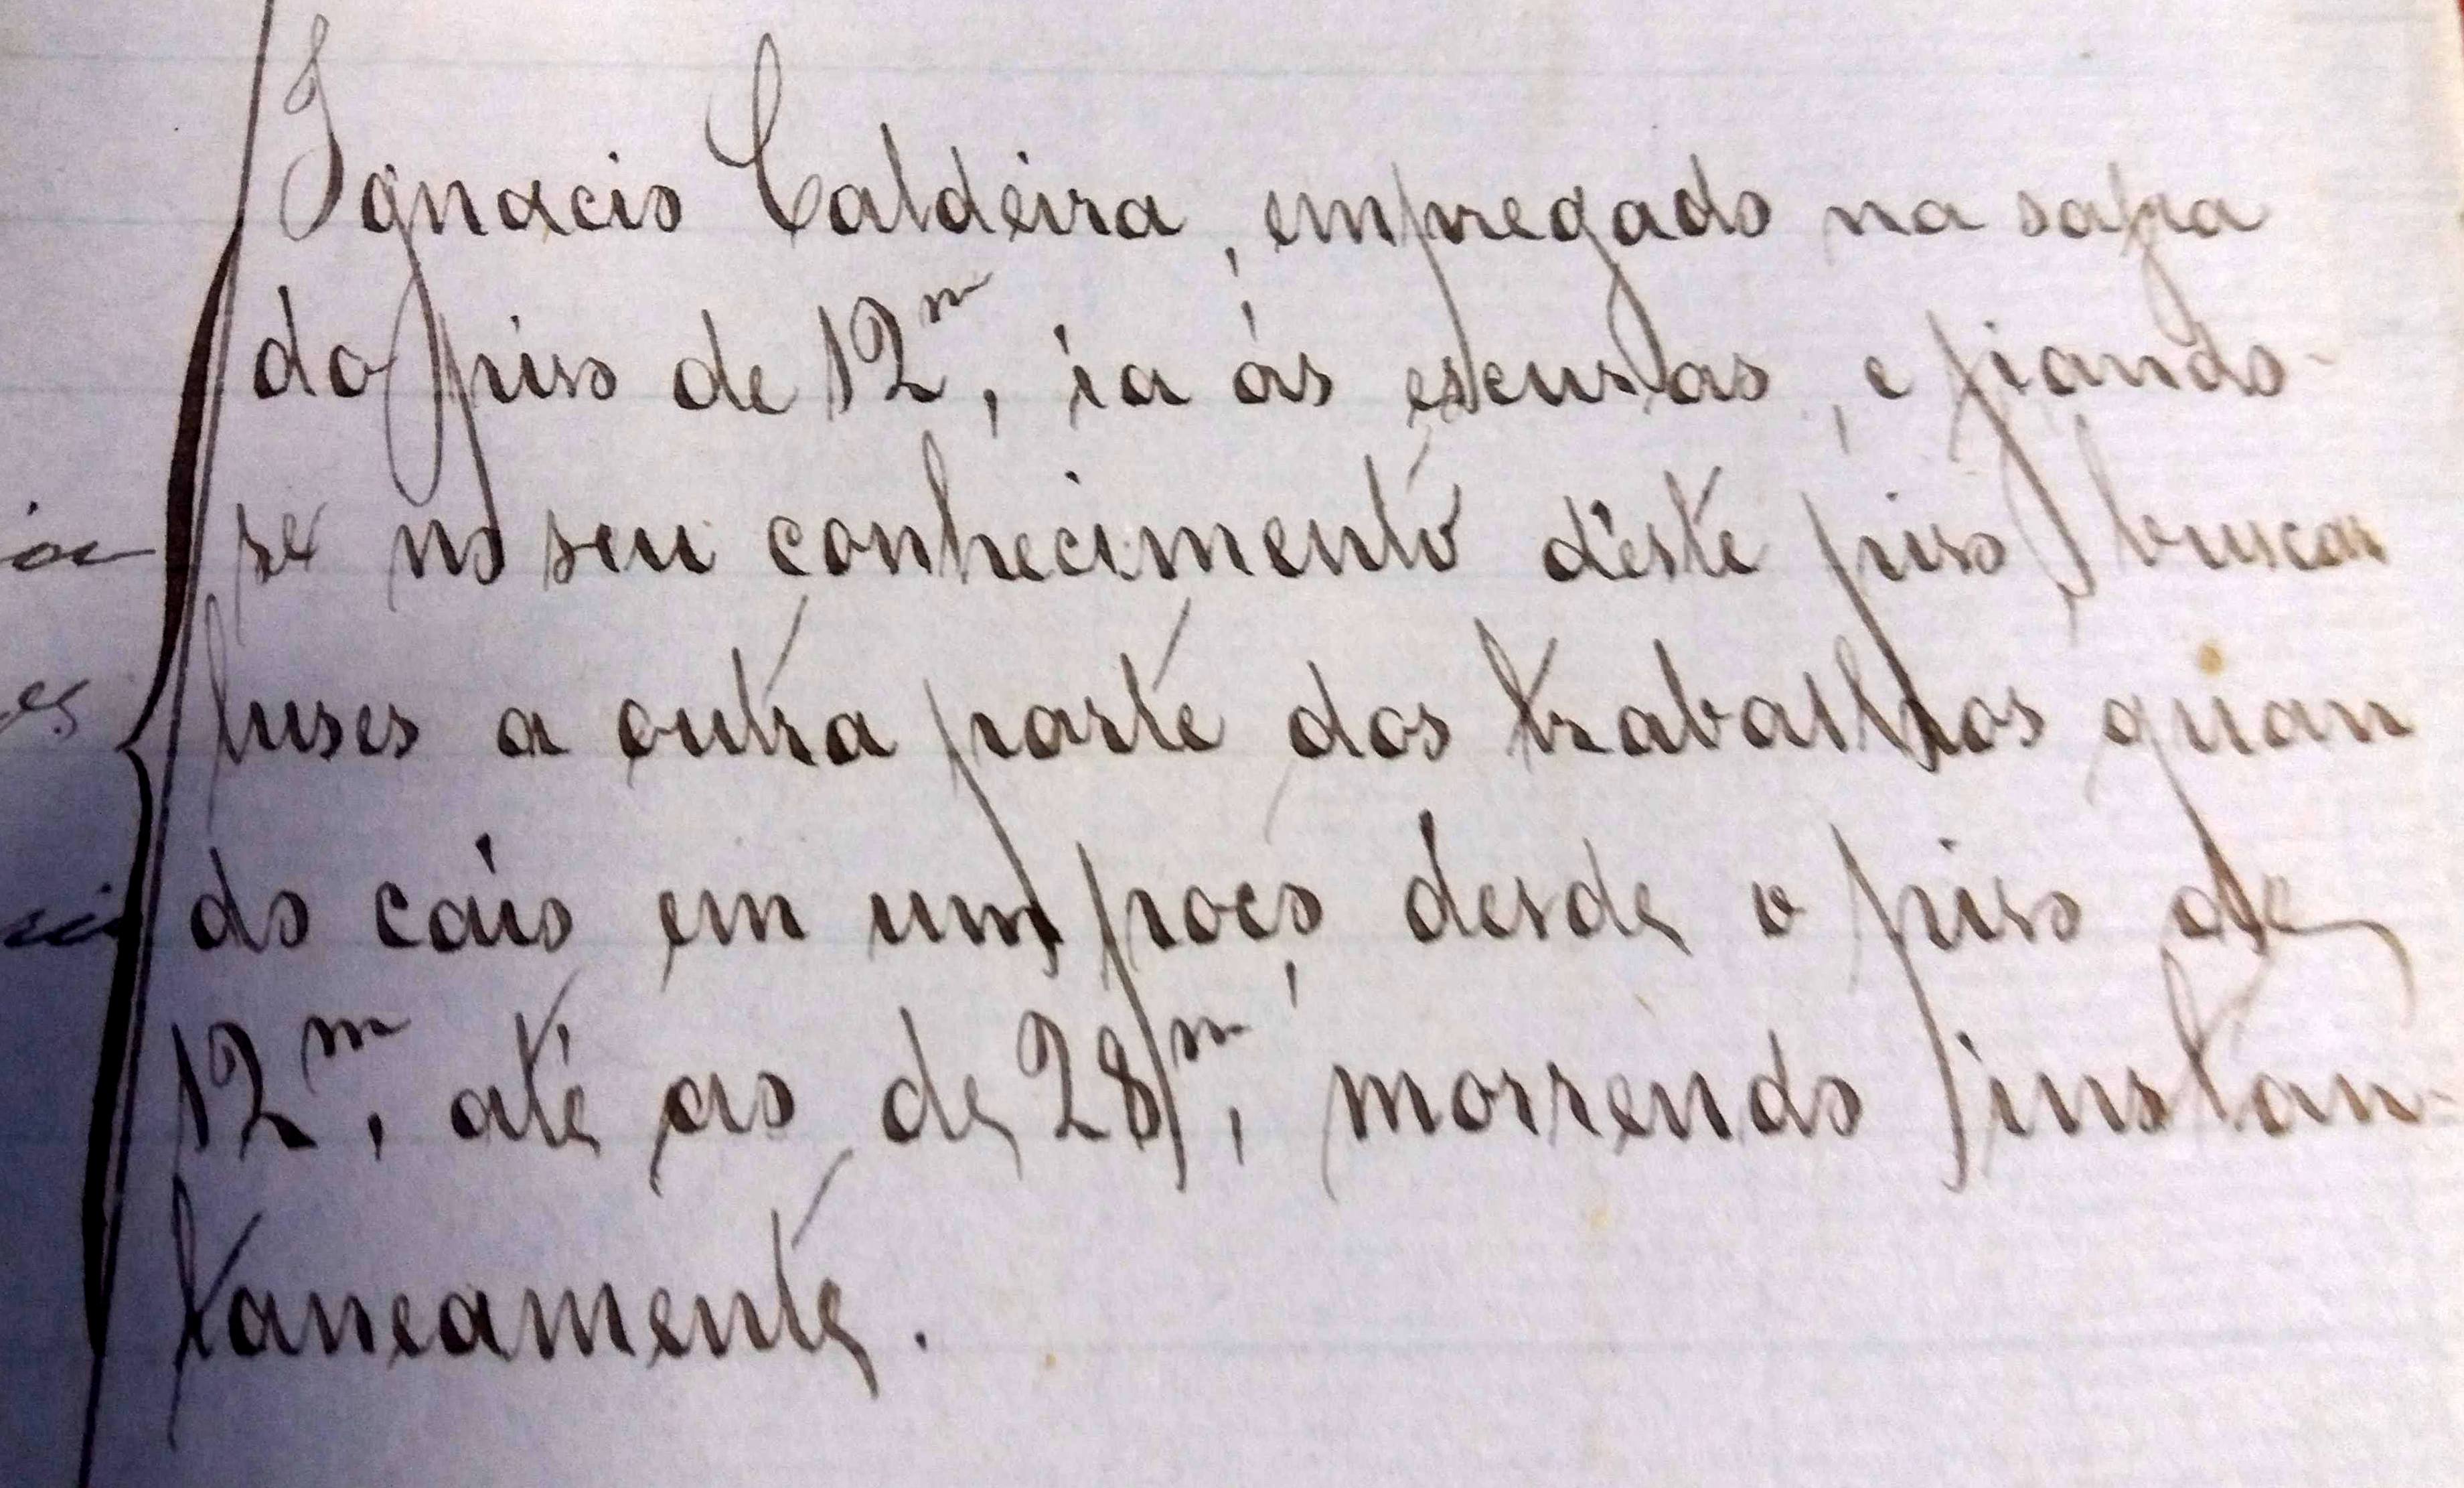 Ignacio Caldeira, empregado na safra
do piso de 12m, ia ás escuras, e fiando-
se no seu conhecimento d'este piso buscar
luses a outra parte dos trabalhos quan
do caio em um poço desde o piso de
12m, até ao de 28m, morrendo instan-
taneamente.